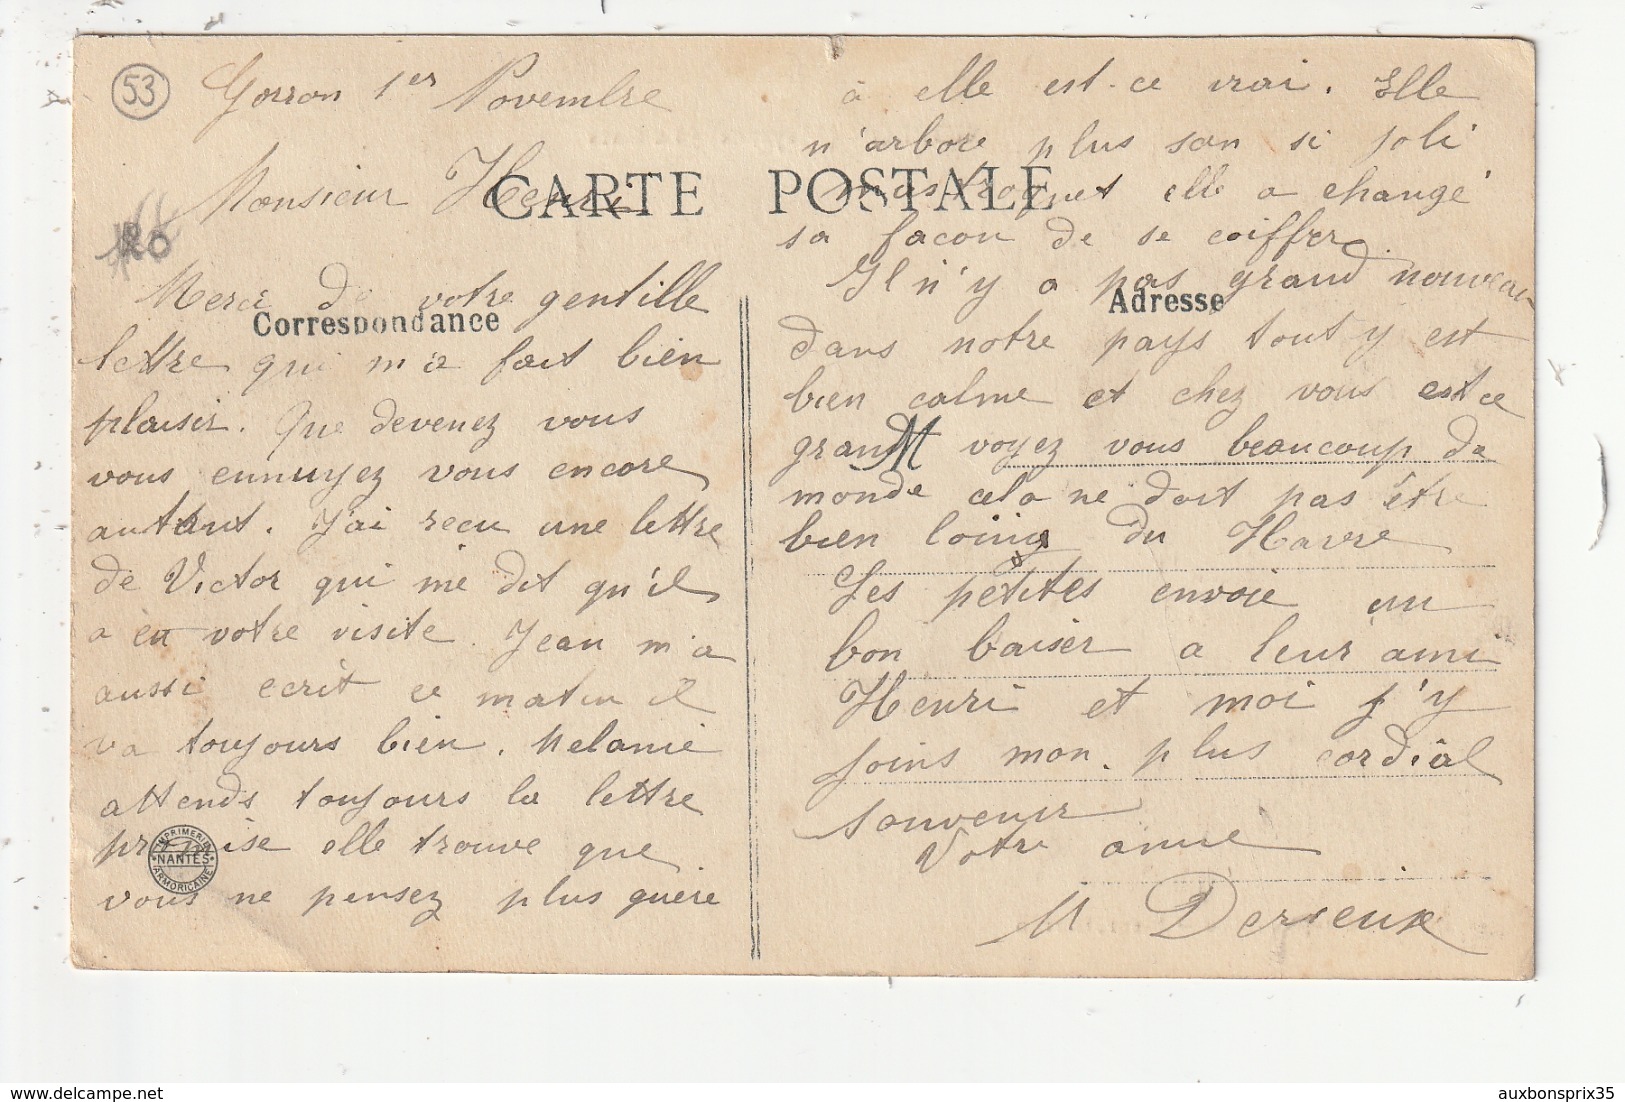 53
Gorron 1er Novembre
Monsieur Henri
CARTE POSTALE
20
Merci de votre gentille
Correspondance
lettre qui m'a fait bien
plaisir. Que devenez vous
vous ennuyez vous encore
autant. J'ai recu une lettre
de Victor qui me dit qu'il
a eu votre visite. Jean m'a
aussi ecrit ce matin il
va toujours bien. Melanie
attends toujours la lettre
promise elle trouve que
IMPRIMERIE ARMORICAINE NANTES
vous ne pensez plus guère
à elle est-ce vrai. Elle
n'arbore plus son si joli
toquet elle a changé
sa facon de se coiffer.
Il n'y a pas grand nouveau
Adresse
dans notre pays tout y est
bien calme et chez vous est ce
grand voyez vous beaucoup de
monde cela ne doit pas être
bien loing du Havre
Les petites envoie un
bon baiser a leur ami
Henri et moi j'y
joins mon plus cordial
souvenir
Votre amie
M Derieux
delcampe.net
auxbonsprix35